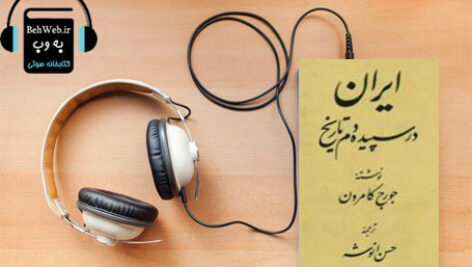 BehWeb.ir
به وب
کتابخانه صوتی
ایران
در سپیده دم تاریخ
نوشته
جورج کامرون
ترجمه
حسن انوشه